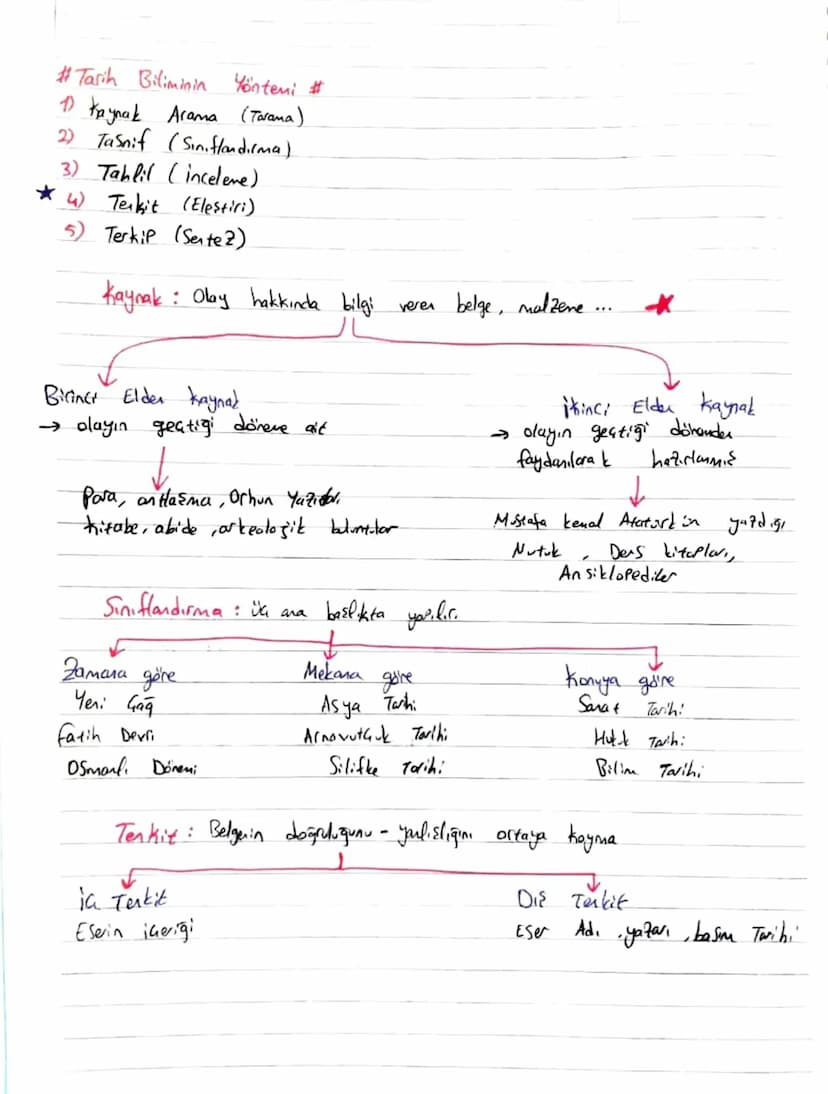 # Tarih Biliminin Yöntemi #
1) Kaynak Arama (Tarama)
2) Tasnif (Sınıflandırma)
3) Tahlil (inceleme)
4) Tenkit (Eleştiri)
5) Terkip (Sentez)
Kaynak : Olay hakkında bilgi veren belge, malzeme ...
Birinci Elden Kaynak
→ olayın geçtiği döneme ait
Para, antlaşma, Orhun Yazıtları
kitabe, abide, arkeolojik buluntular
İkinci Elden Kaynak
→ olayın geçtiği dönemden
faydanılarak hazırlanmış
Mustafa Kemal Atatürk'ün yazdığı
Nutuk, Ders kitapları,
Ansiklopediler
Sınıflandırma : iki ana başlıkta yapılır.
Zamana göre
Yeni Çağ
Fatih Devri
Osmanlı Dönemi
Mekana göre
Asya Tarihi
Arnavutluk Tarihi
Silifke Tarihi
Konuya göre
Sanat Tarihi
Hukuk Tarihi
Bilim Tarihi
Tenkit : Belgenin doğruluğunu - yanlışlığını ortaya koyma
İç Tenkit
Eserin içeriği
Dış Tenkit
Eser Adı, yazarı, basım Tarihi